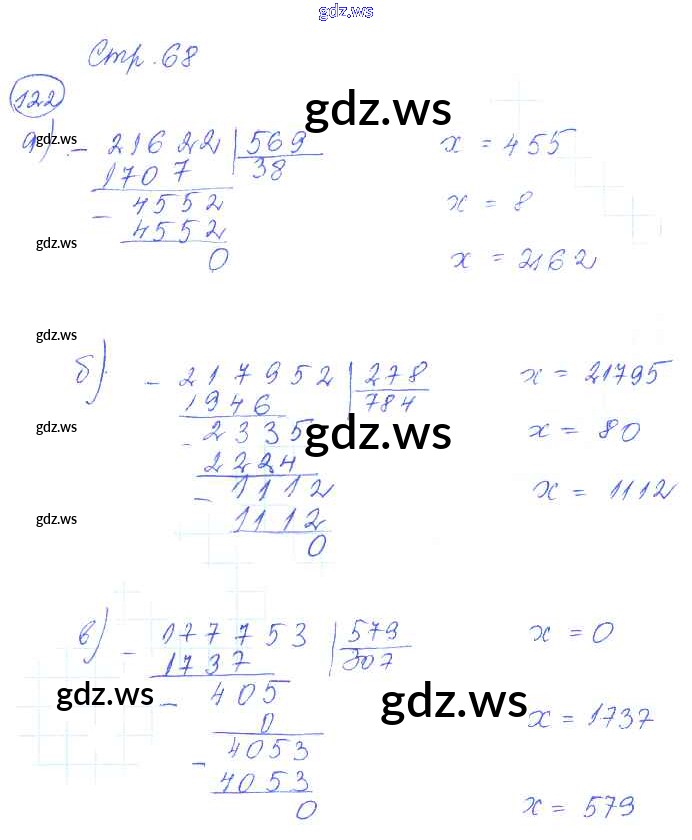 gdz.ws
Стр. 68
122
gdz.ws
а) - 21622 | 569 x = 455
gdz.ws
1707 38
- 4552 x = 8
4552
gdz.ws
0 x = 2162
gdz.ws
б) - 217952 | 278 x = 21795
1946 784
- 2335 x = 80
gdz.ws gdz.ws
2224
- 1112 x = 1112
1112
gdz.ws
0
в) - 177753 | 579 x = 0
1737 307
- 405
gdz.ws gdz.ws
0 x = 1737
- 4053
4053
0 x = 579